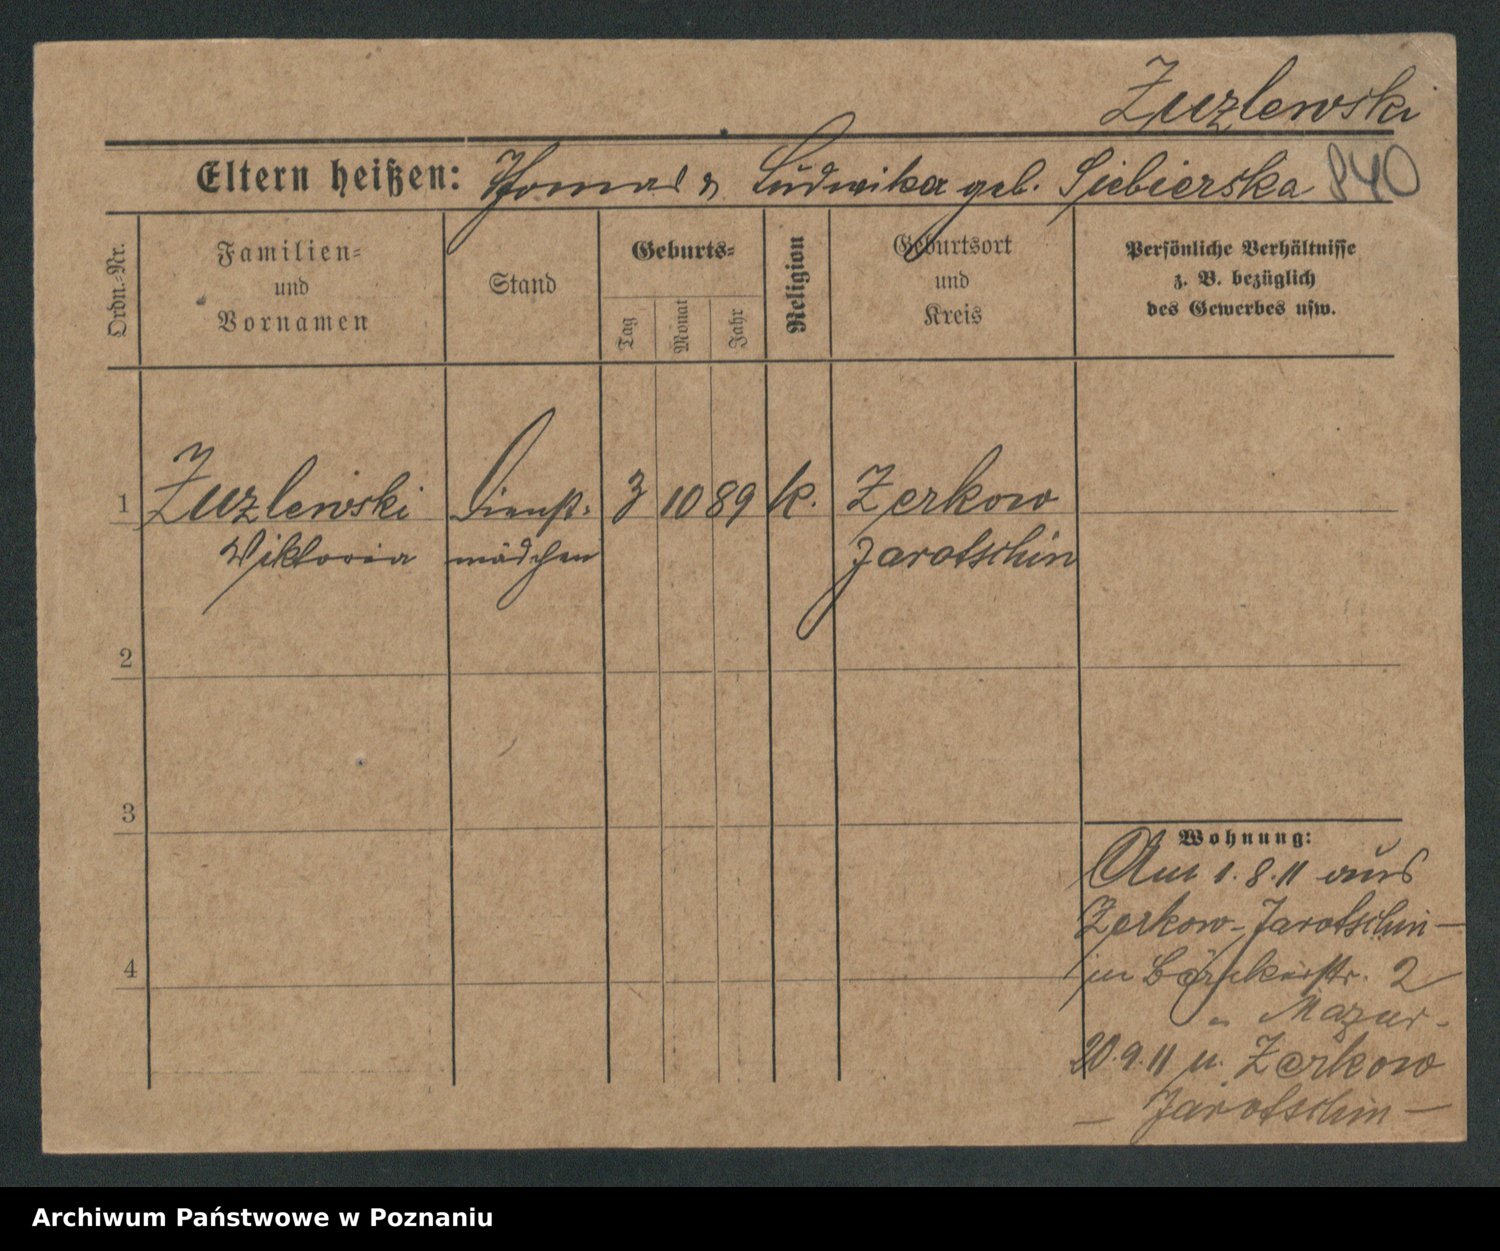 Zuzlewski
Eltern heißen: Thomas u Ludwika geb. Siebierska 840
Ordn.-Nr.
Familien-
und
Vornamen
Stand
Geburts-
Tag
Monat
Jahr
Religion
Geburtsort
und
Kreis
Persönliche Verhältnisse
z. B. bezüglich
des Gewerbes usw.
1 Zuzlewski Dienst- 3 10 89 k. Zerkow
Viktoria mädchen Jarotschin
2
3
4
Wohnung:
Am 1.8.11 aus
Zerkow-Jarotschin-
in Bäckerstr. 2
Mazur.
20.9.11 n. Zerkow
- Jarotschin -
Archiwum Państwowe w Poznaniu